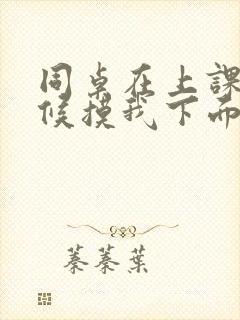 同桌在上課
候摸我下面
蓁蓁葉